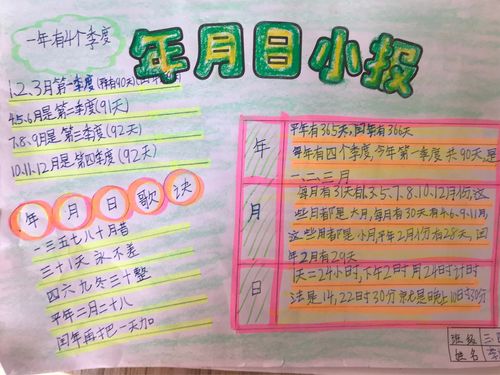 年月日小报
一年有4个季度
1.2.3月第一季度(平年有90天)
4.5.6月是第二季度(91天)
7.8.9月是第三季度(92天)
10.11.12月是第四季度(92天)
年月日歌诀
一三五七八十月腊
三十一天永不差
四六九冬三十整
平年二月二十八
闰年再把一天加
年
平年有365天,闰年有366天
每年有四个季度,今年第一季度共90天,是
一、二、三月
月
每月有31天有1.3.5.7.8.10.12月份,这
些月都是大月,每月有30天有4.6.9.11月,
这些月都是小月,平年2月份有28天,闰
年2月有29天
日
1天=24小时,下午2时用24时计时
法是14,22时30分就是晚上10时30分
班级 三.
姓名